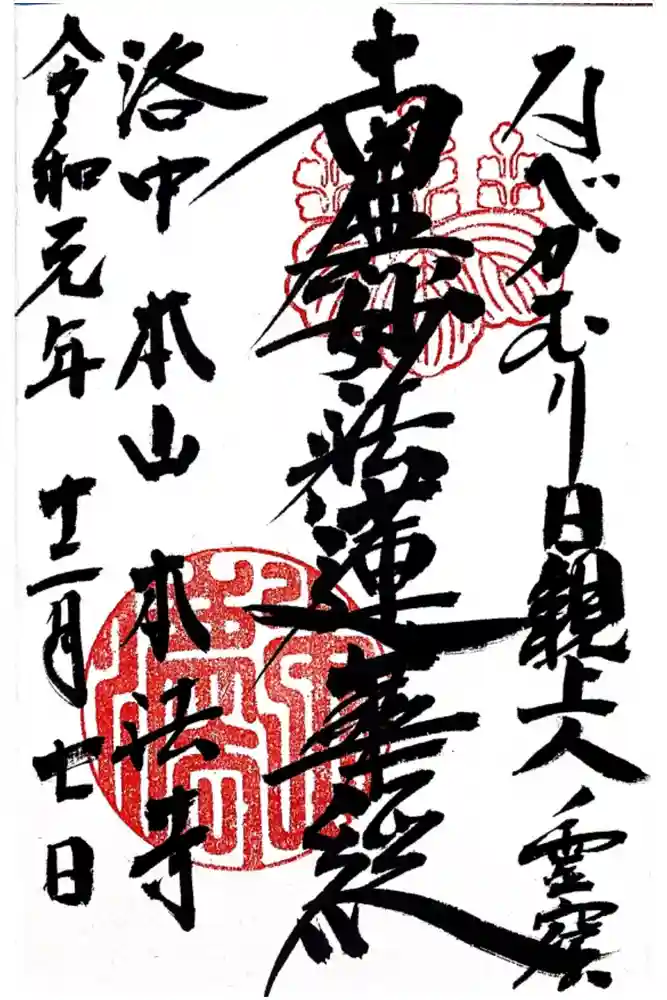 なべかむり日親上人ノ霊窟
南無妙法蓮華経
洛中 本山 本法寺
令和元年 十二月七日